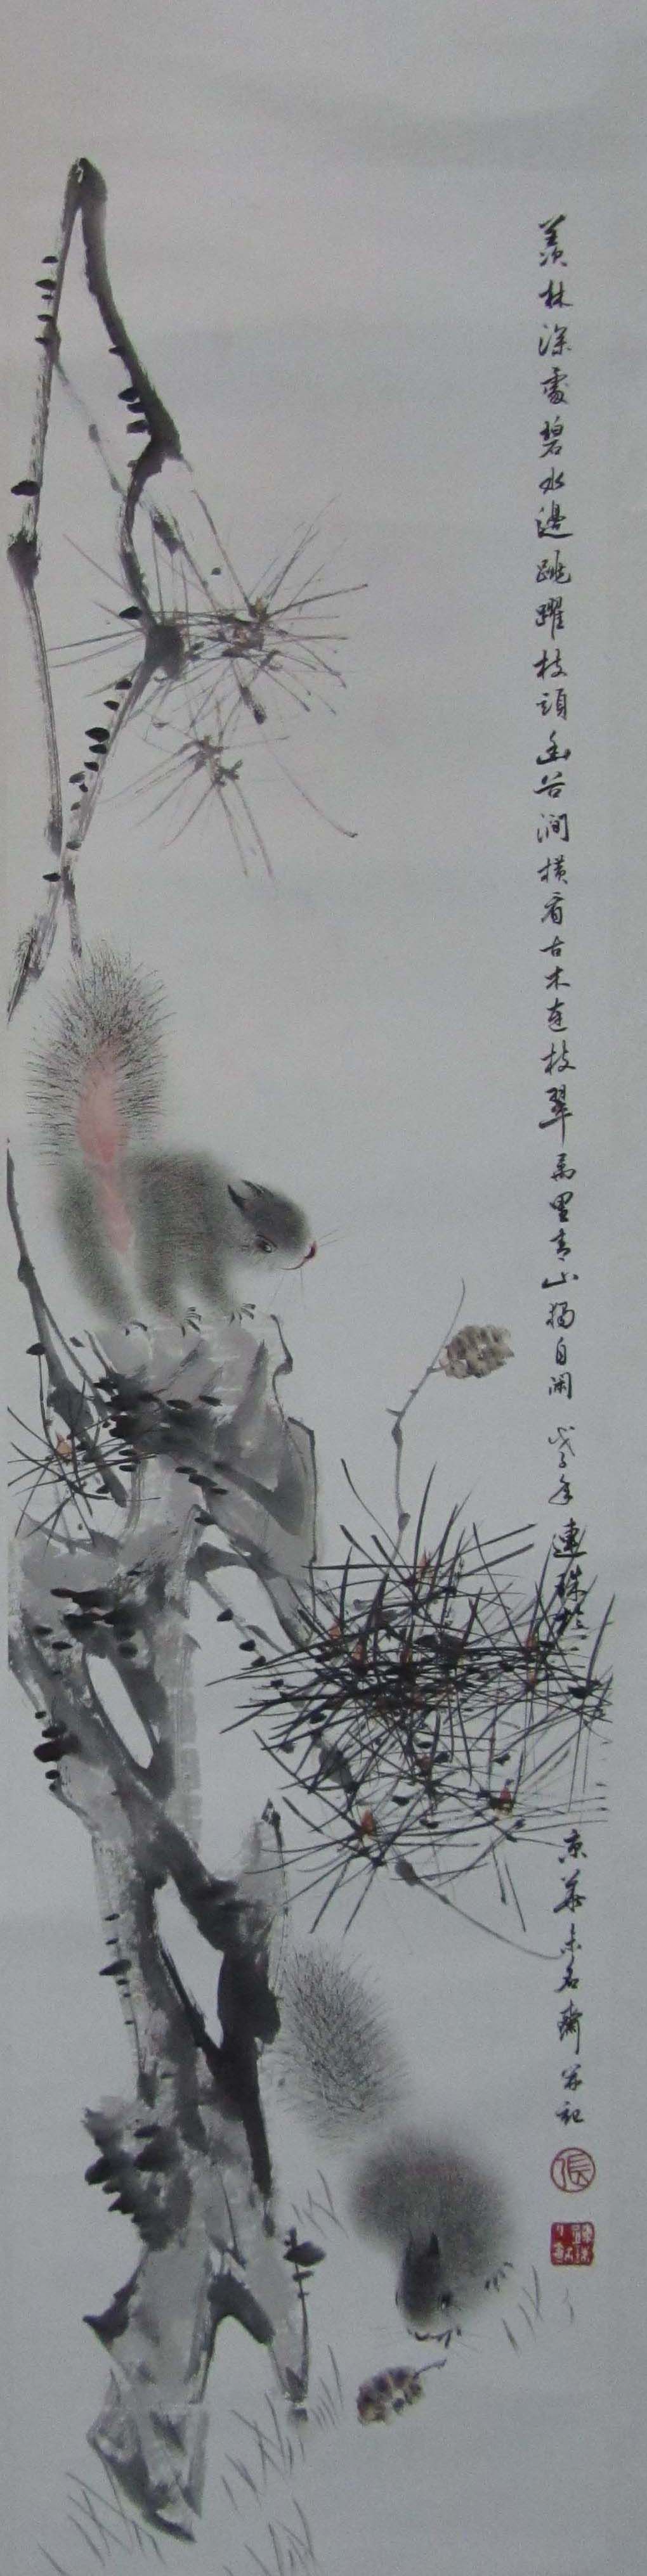 羨林深處碧水邊跳躍枝頭幽谷澗橫看古木連枝翠萬里青山獨自閑 戊子年 連珠於
京華未名齋並記
張